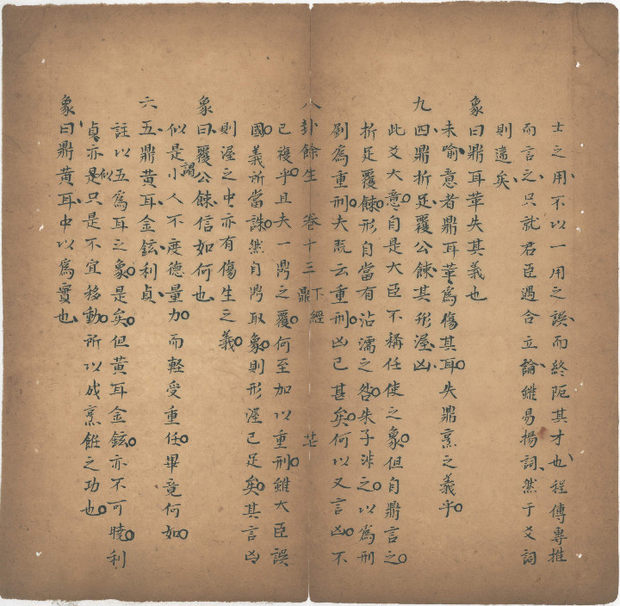 士之用不以一用之誤而終阨其才也程傳專推
而言之只就君臣遇合立論雖易揚詞然于爻詞
則遠矣
象曰鼎耳革失其義也
未喻意者鼎耳革為傷其耳失鼎烹之義乎
九四鼎折足覆公餗其形渥凶
此爻大意自是大臣不稱任使之象但自鼎言之
折足覆餗形自當有沾濡之咎朱子涉之以為刑
剭為重刑夫既云重刑凶已甚矣何以又言凶不
八卦餘生 卷十三 下經 鼎
已複乎且夫一鼎之覆何至加以重刑雖大臣誤
國義所當誅然自鼎取象則形渥已足矣其言凶
則渥之中亦有傷生之義
象曰覆公餗信如何也
似謂是小人不度德量力而輕受重任畢竟何如
六五鼎黃耳金鉉利貞
註以五為耳之象是矣但黃耳金鉉亦不可曉利
貞似亦是只是不宜移動所以成烹飪之功也
象曰鼎黃耳中以為實也